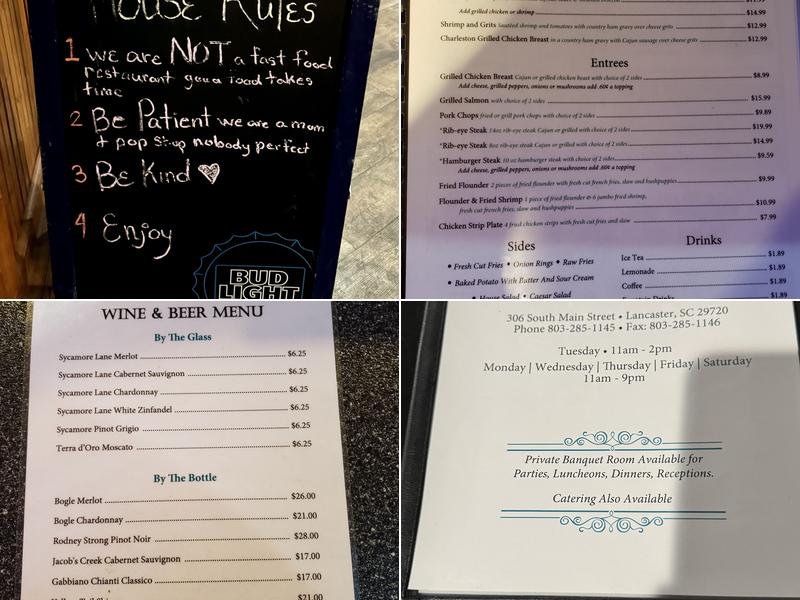 House Rules
1 we are NOT a fast food
restaurant your food takes
time
2 Be Patient we are a mom
+ pop shop nobody perfect
3 Be Kind
4 Enjoy
BUD
LIGHT
Add chicken or shrimp $14.99
Shrimp and Grits Sautéed shrimp and tomatoes with country ham gravy over cheese grits $12.99
Charleston Grilled Chicken Breast in a country ham gravy with Cajun sausage over cheese grits $12.99
Entrees
Grilled Chicken Breast Cajun or grilled chicken breast with choice of 2 sides $8.99
Add cheese, grilled peppers, onions or mushrooms add .60¢ a topping
Grilled Salmon with choice of 2 sides $15.99
Pork Chops fried or grill pork chops with choice of 2 sides $9.89
*Rib-eye Steak 14oz rib-eye steak Cajun or grilled with choice of 2 sides $19.99
*Rib-eye Steak 8oz rib-eye steak Cajun or grilled with choice of 2 sides $14.99
*Hamburger Steak 10 oz hamburger steak with choice of 2 sides $9.59
Add cheese, grilled peppers, onions or mushrooms add .60¢ a topping
Fried Flounder 2 pieces of fried flounder with fresh cut french fries, slaw and hushpuppies $9.99
Flounder & Fried Shrimp 1 piece of fried flounder & 6 jumbo fried shrimp,
fresh cut french fries, slaw and hushpuppies $10.99
Chicken Strip Plate 4 fried chicken strips with fresh cut fries and slaw $7.99
Sides
• Fresh Cut Fries • Onion Rings • Raw Fries
• Baked Potato With Butter And Sour Cream
• House Salad • Caesar Salad
Drinks
Ice Tea $1.89
Lemonade $1.89
Coffee $1.89
Fountain Drinks $1.89
WINE & BEER MENU
By The Glass
Sycamore Lane Merlot $6.25
Sycamore Lane Cabernet Sauvignon $6.25
Sycamore Lane Chardonnay $6.25
Sycamore Lane White Zinfandel $6.25
Sycamore Pinot Grigio $6.25
Terra d'Oro Moscato $6.25
By The Bottle
Bogle Merlot $26.00
Bogle Chardonnay $21.00
Rodney Strong Pinot Noir $28.00
Jacob's Creek Cabernet Sauvignon $17.00
Gabbiano Chianti Classico $17.00
$21.00
306 South Main Street • Lancaster, SC 29720
Phone 803-285-1145 • Fax: 803-285-1146
Tuesday • 11am - 2pm
Monday | Wednesday | Thursday | Friday | Saturday
11am - 9pm
Private Banquet Room Available for
Parties, Luncheons, Dinners, Receptions.
Catering Also Available